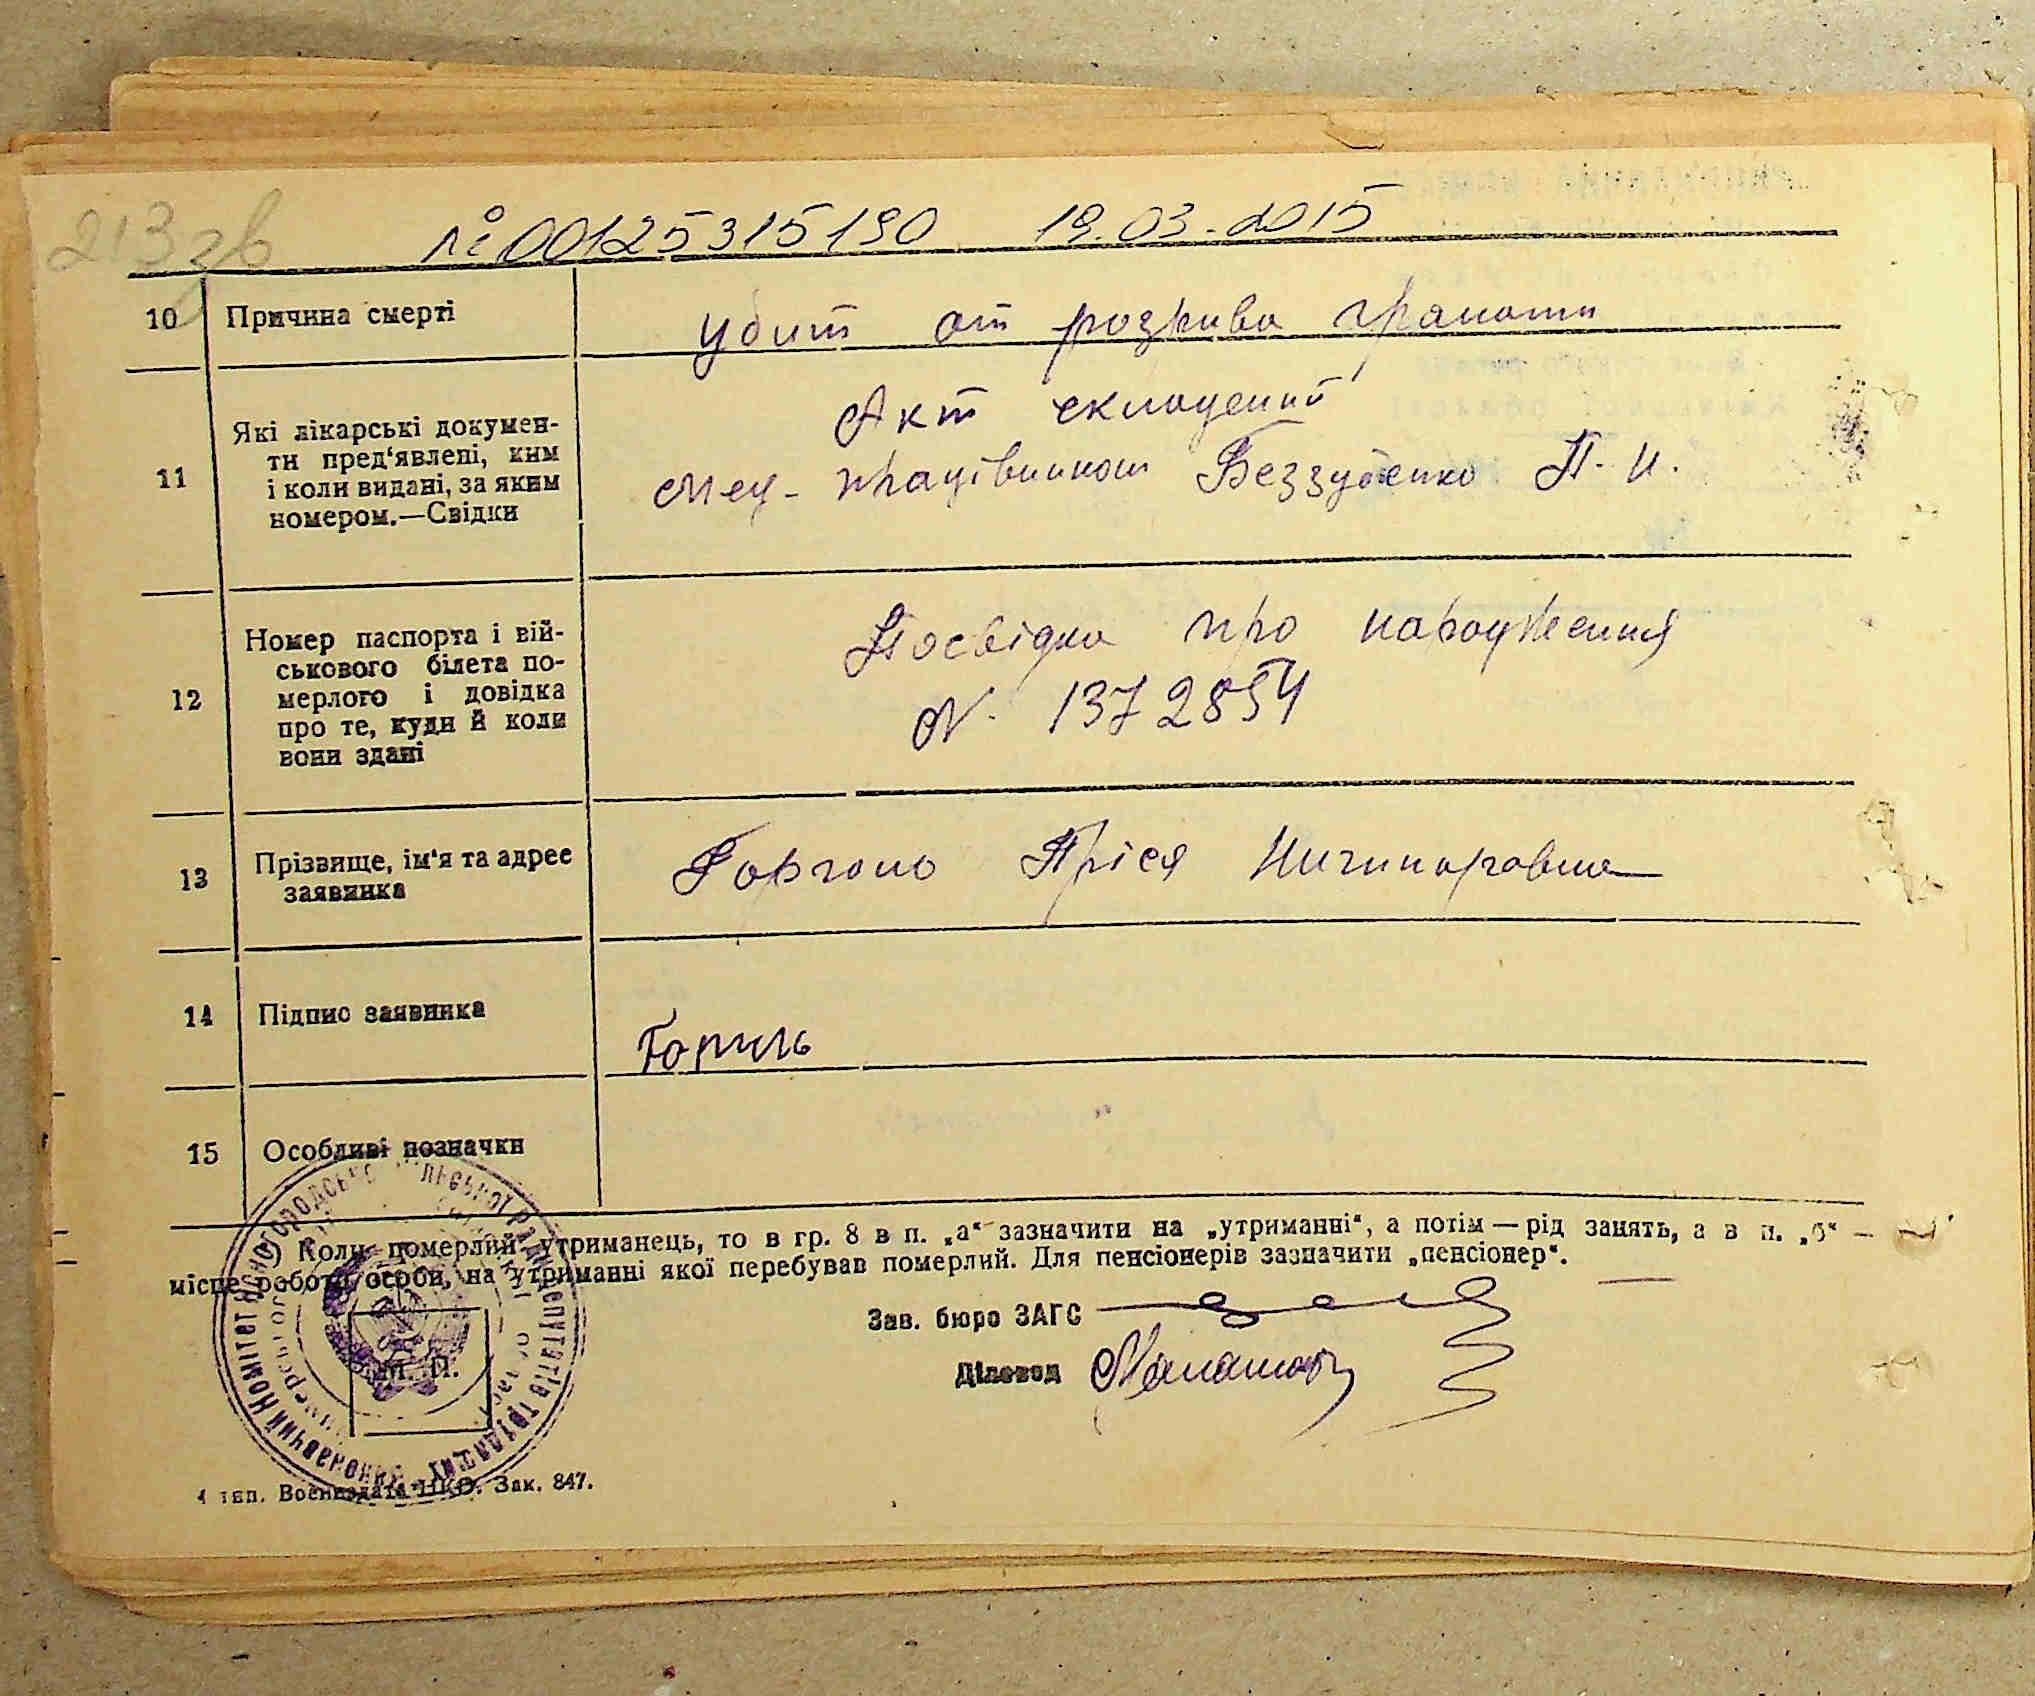 213зв
№ 00125315190 19.03.2015
10 Причина смерті
убит от розрива гранати
11 Які лікарські докумен-
ти пред'явлені, ким
і коли видані, за яким
номером.—Свідки
Акт складений
мед-працівником Беззубенко П. И.
12 Номер паспорта і вій-
ськового білета по-
мерлого і довідка
про те, куди й коли
вони здані
Посвідка про народження
N. 1372854
13 Прізвище, ім'я та адрес
заявника
Пріся Ничипоровна
14 Підпис заявника
15 Особливі позначки
Коли померлий утриманець, то в гр. 8 в п. „а“ зазначити на „утриманні“, а потім — рід занять, а в п. „б“ —
місце роботи особи, на утриманні якої перебував померлий. Для пенсіонерів зазначити „пенсіонер“.
Зав. бюро ЗАГС
Діловод
М. П.
Виконавчий комітет Ясногородської сільської ради депутатів трудящих
тип. Воениздата НКО. Зак. 847.